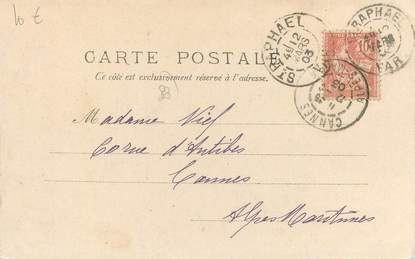 10 €
ST RAPHAEL
12
MARS
03
RAPHAEL
VAR
CARTE POSTALE
Ce côté est exclusivement réservé à l'adresse.
CANNES
03
Madame Vief
Corne d'Antibes
Cannes
Alpes Maritimes